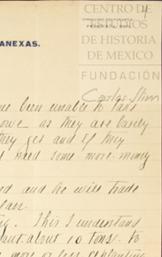 CENTRO DE
ESTUDIOS
DE HISTORIA
DE MEXICO
ANEXAS.
FUNDACIÓN
Carlos Slim
been unable to take
as they are barely
they get and if they
need some more money
and he will trade
This I understand
about 10 tons. to
more or less